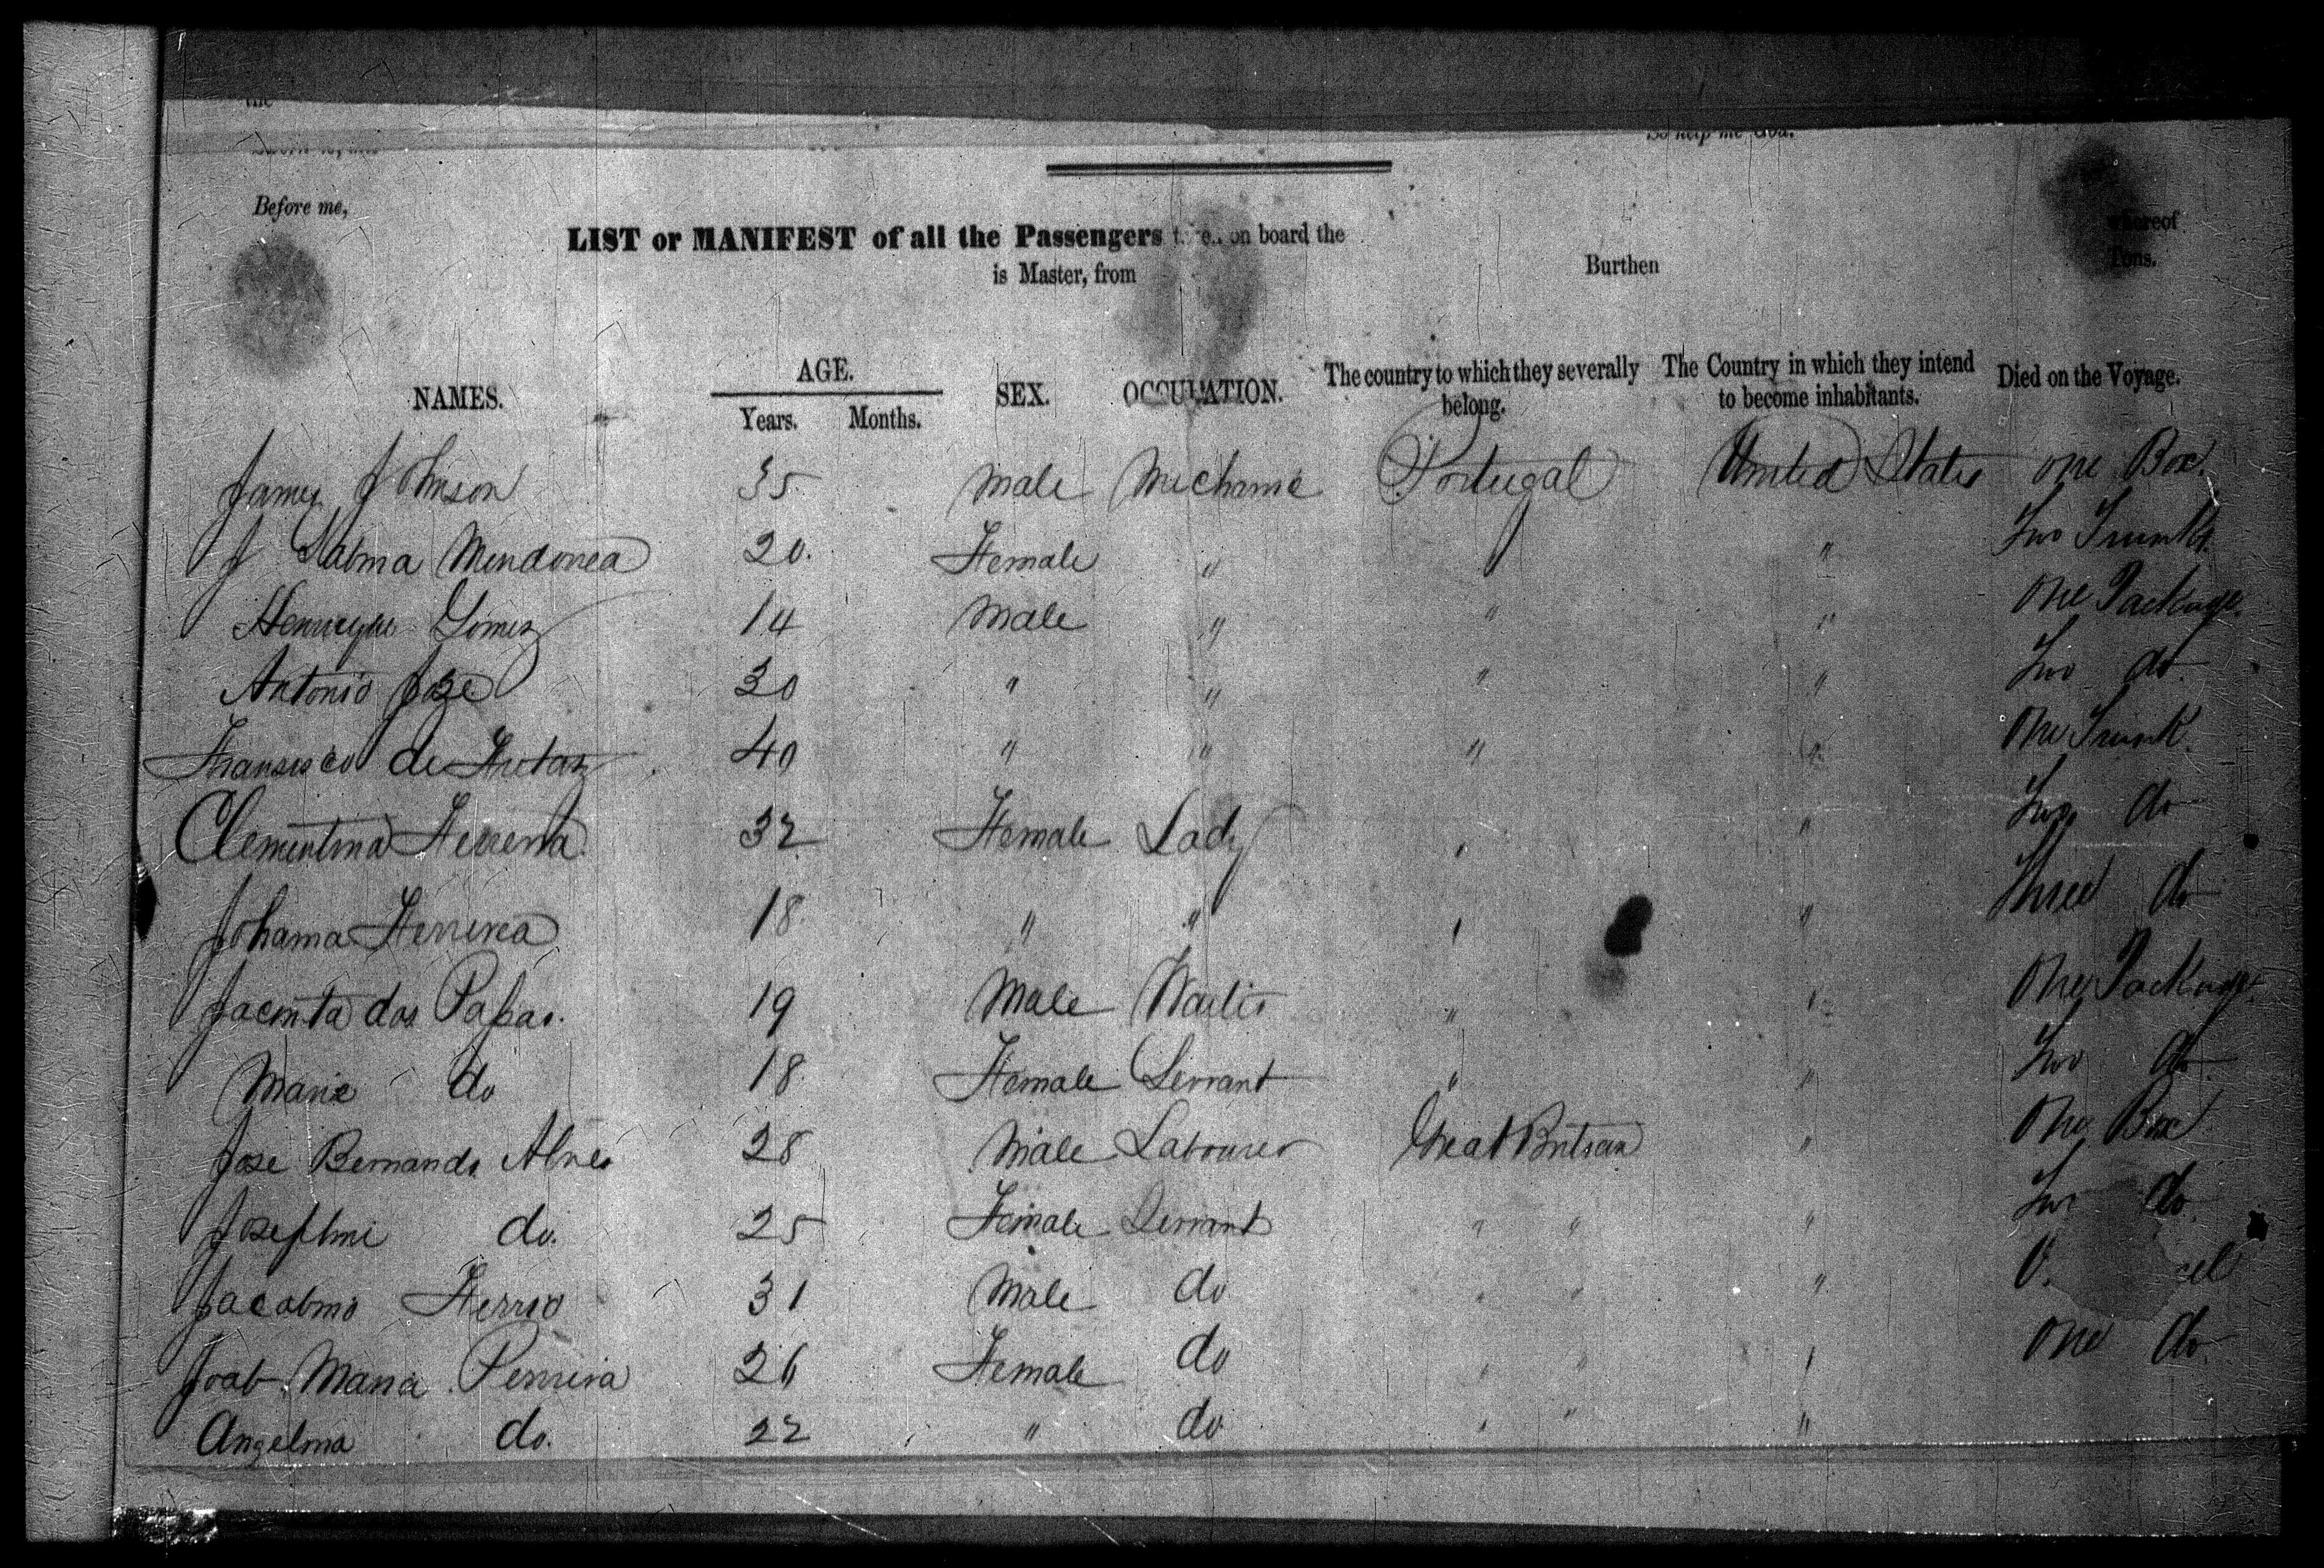 the
So help me God.
Before me,
LIST or MANIFEST of all the Passengers on board the whereof
is Master, from Burthen Tons.
NAMES. AGE. SEX. OCCUPATION. The country to which they severally belong. The Country in which they intend to become inhabitants. Died on the Voyage.
Years. Months.
James Johnson 35 Male Mechanic Portugal United States one Box.
J Mendonca 20. Female " " Two Trunks
Henrique Gomez 14 Male " " " One Package
Antonio Joze 30 " " " " Two do.
Fransisco de Fretaz 40 " " " " One Trunk.
Clementina 32 Female Lady " " Two do
Johanna 18 " " " " Three do
Jacinta dos 19 Male " " One Package
Maria do 18 Female Servant " " Two do
Joze Bernando Alves 28 Male Labourer Great Britain " One Box
do. 25 Female Servant " " " Two do.
31 Male do " " "
Maria 26 Female do " " " One do.
Angelina do. 22 " do. " " "